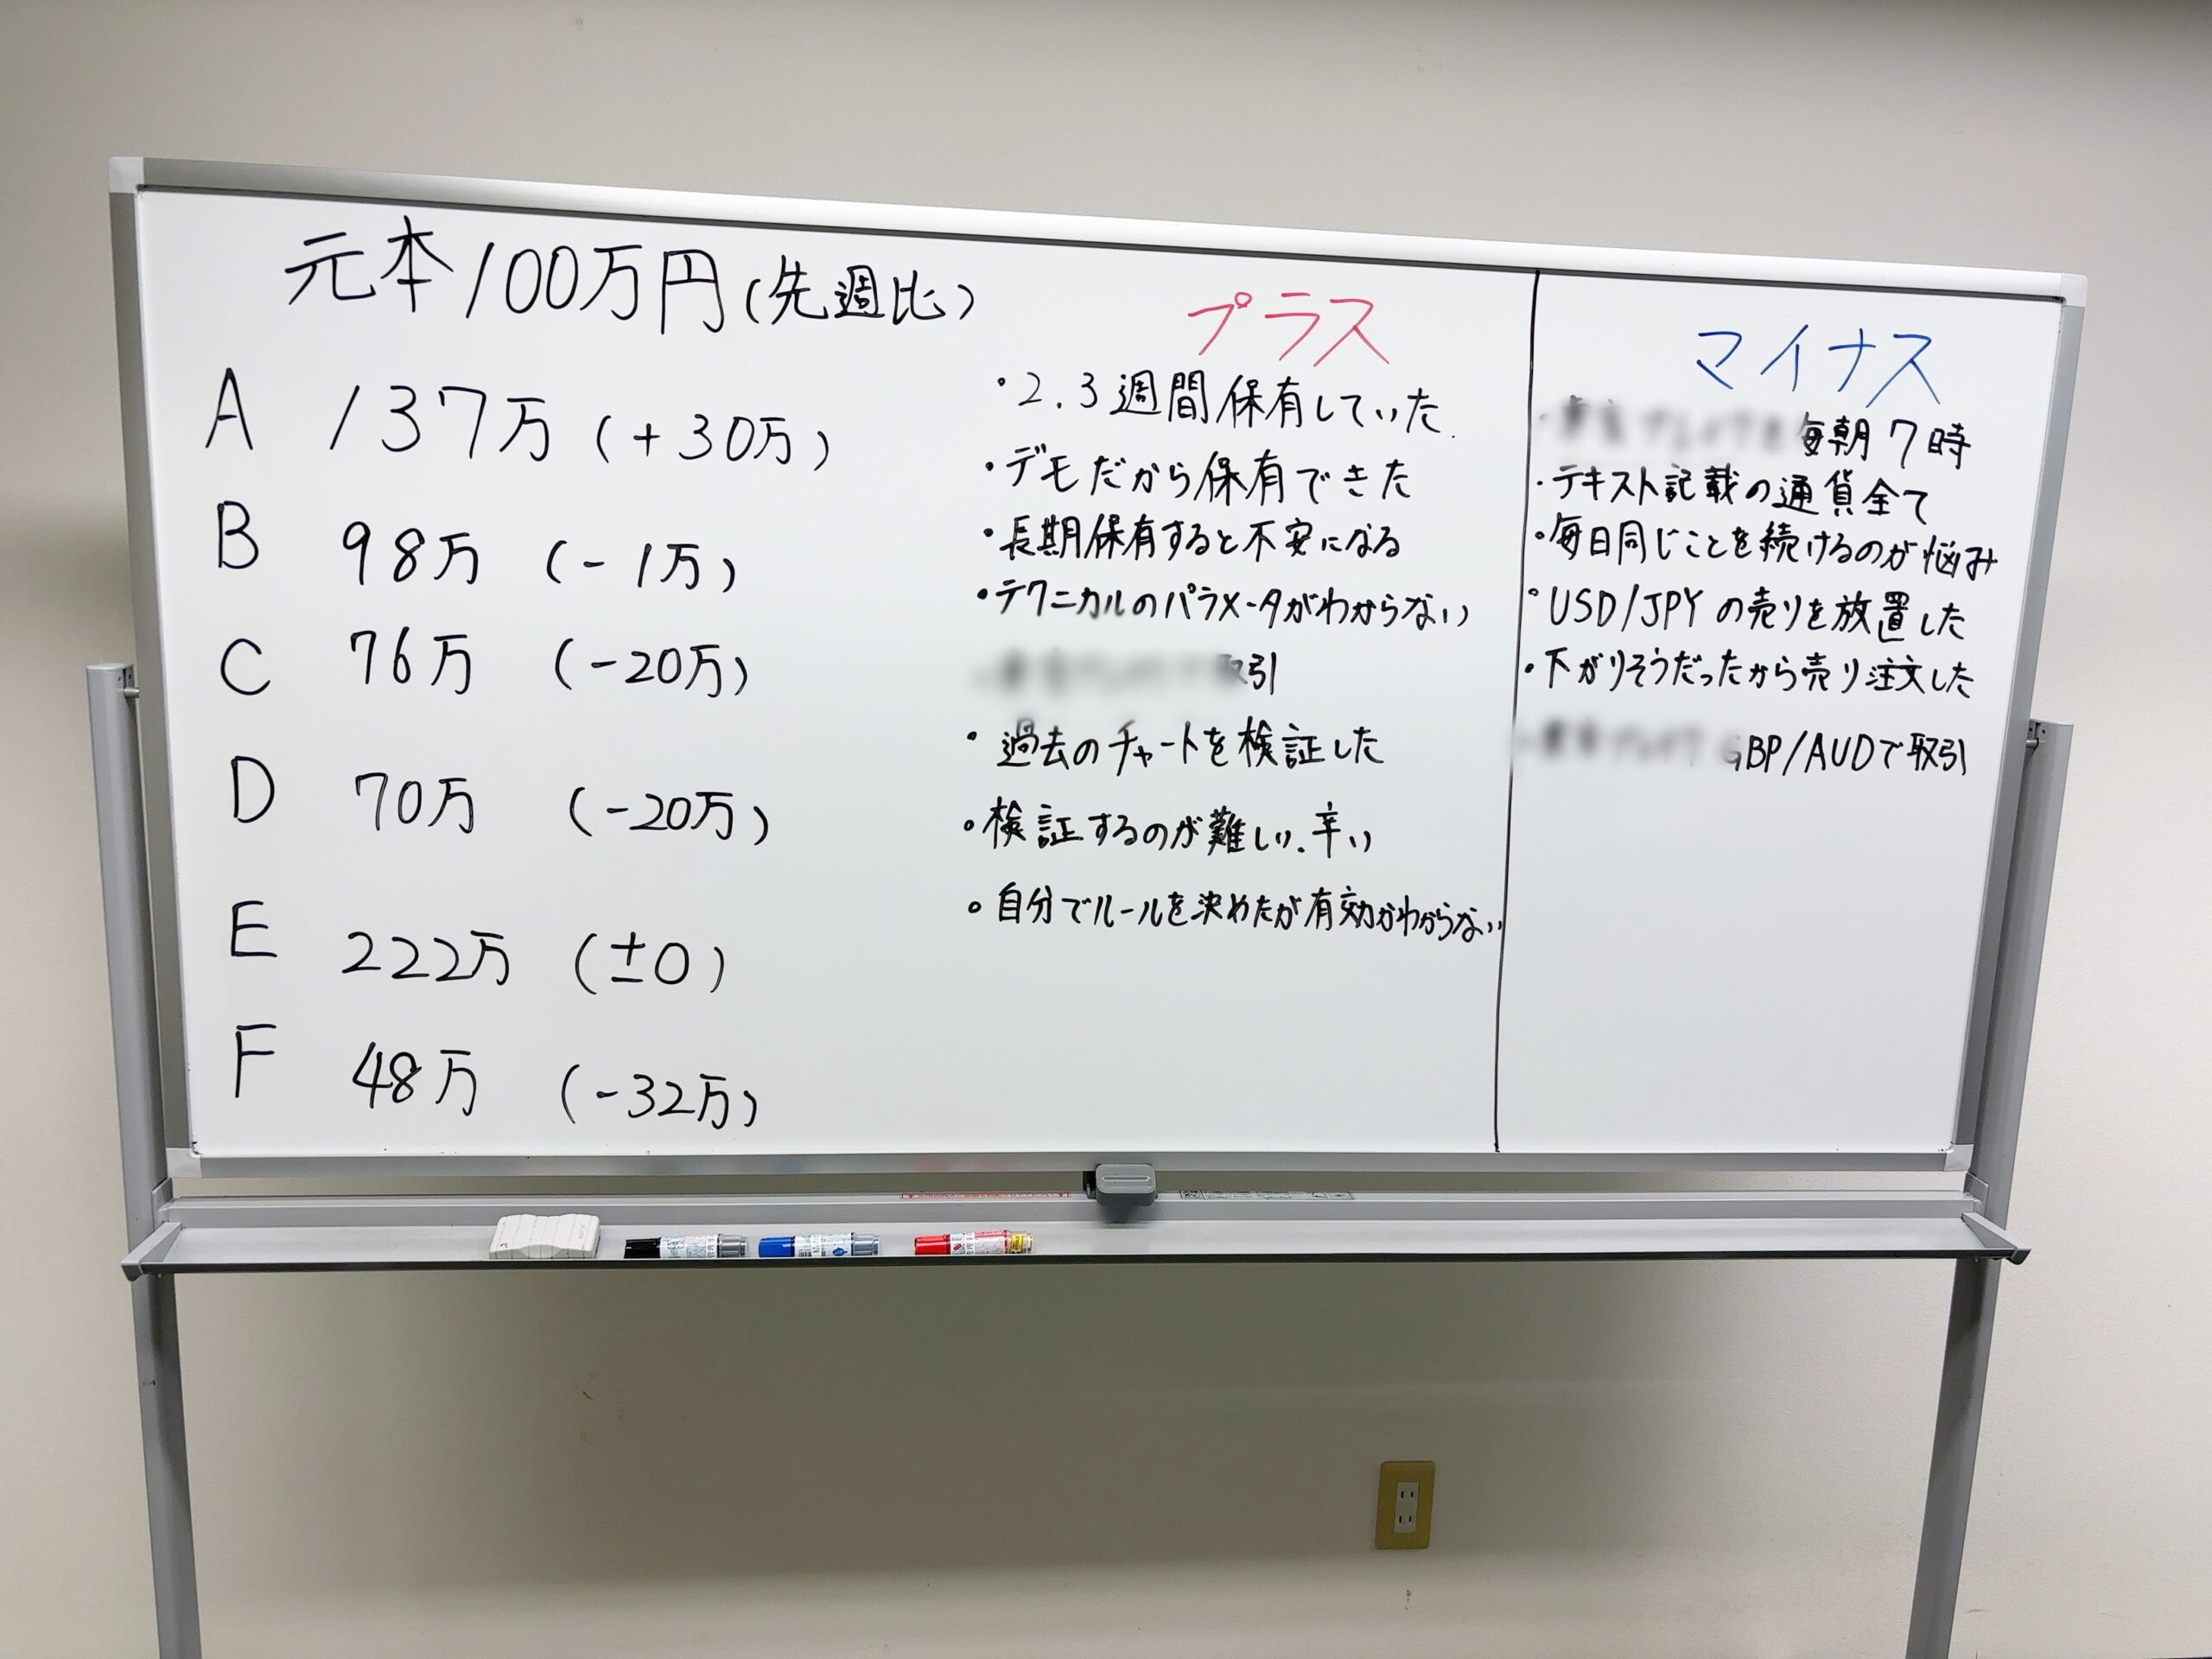 元本100万円(先週比)
A 137万 (+30万)
B 98万 (-1万)
C 76万 (-20万)
D 70万 (-20万)
E 222万 (±0)
F 48万 (-32万)
プラス
・2.3週間保有していた.
・デモだから保有できた
・長期保有すると不安になる
・テクニカルのパラメータがわからない
取引
・過去のチャートを検証した
・検証するのが難しい、辛い
・自分でルールを決めたが有効かわからない
マイナス
毎朝7時
・テキスト記載の通貨全て
・毎日同じことを続けるのが悩み
・USD/JPYの売りを放置した
・下がりそうだったから売り注文した
GBP/AUDで取引